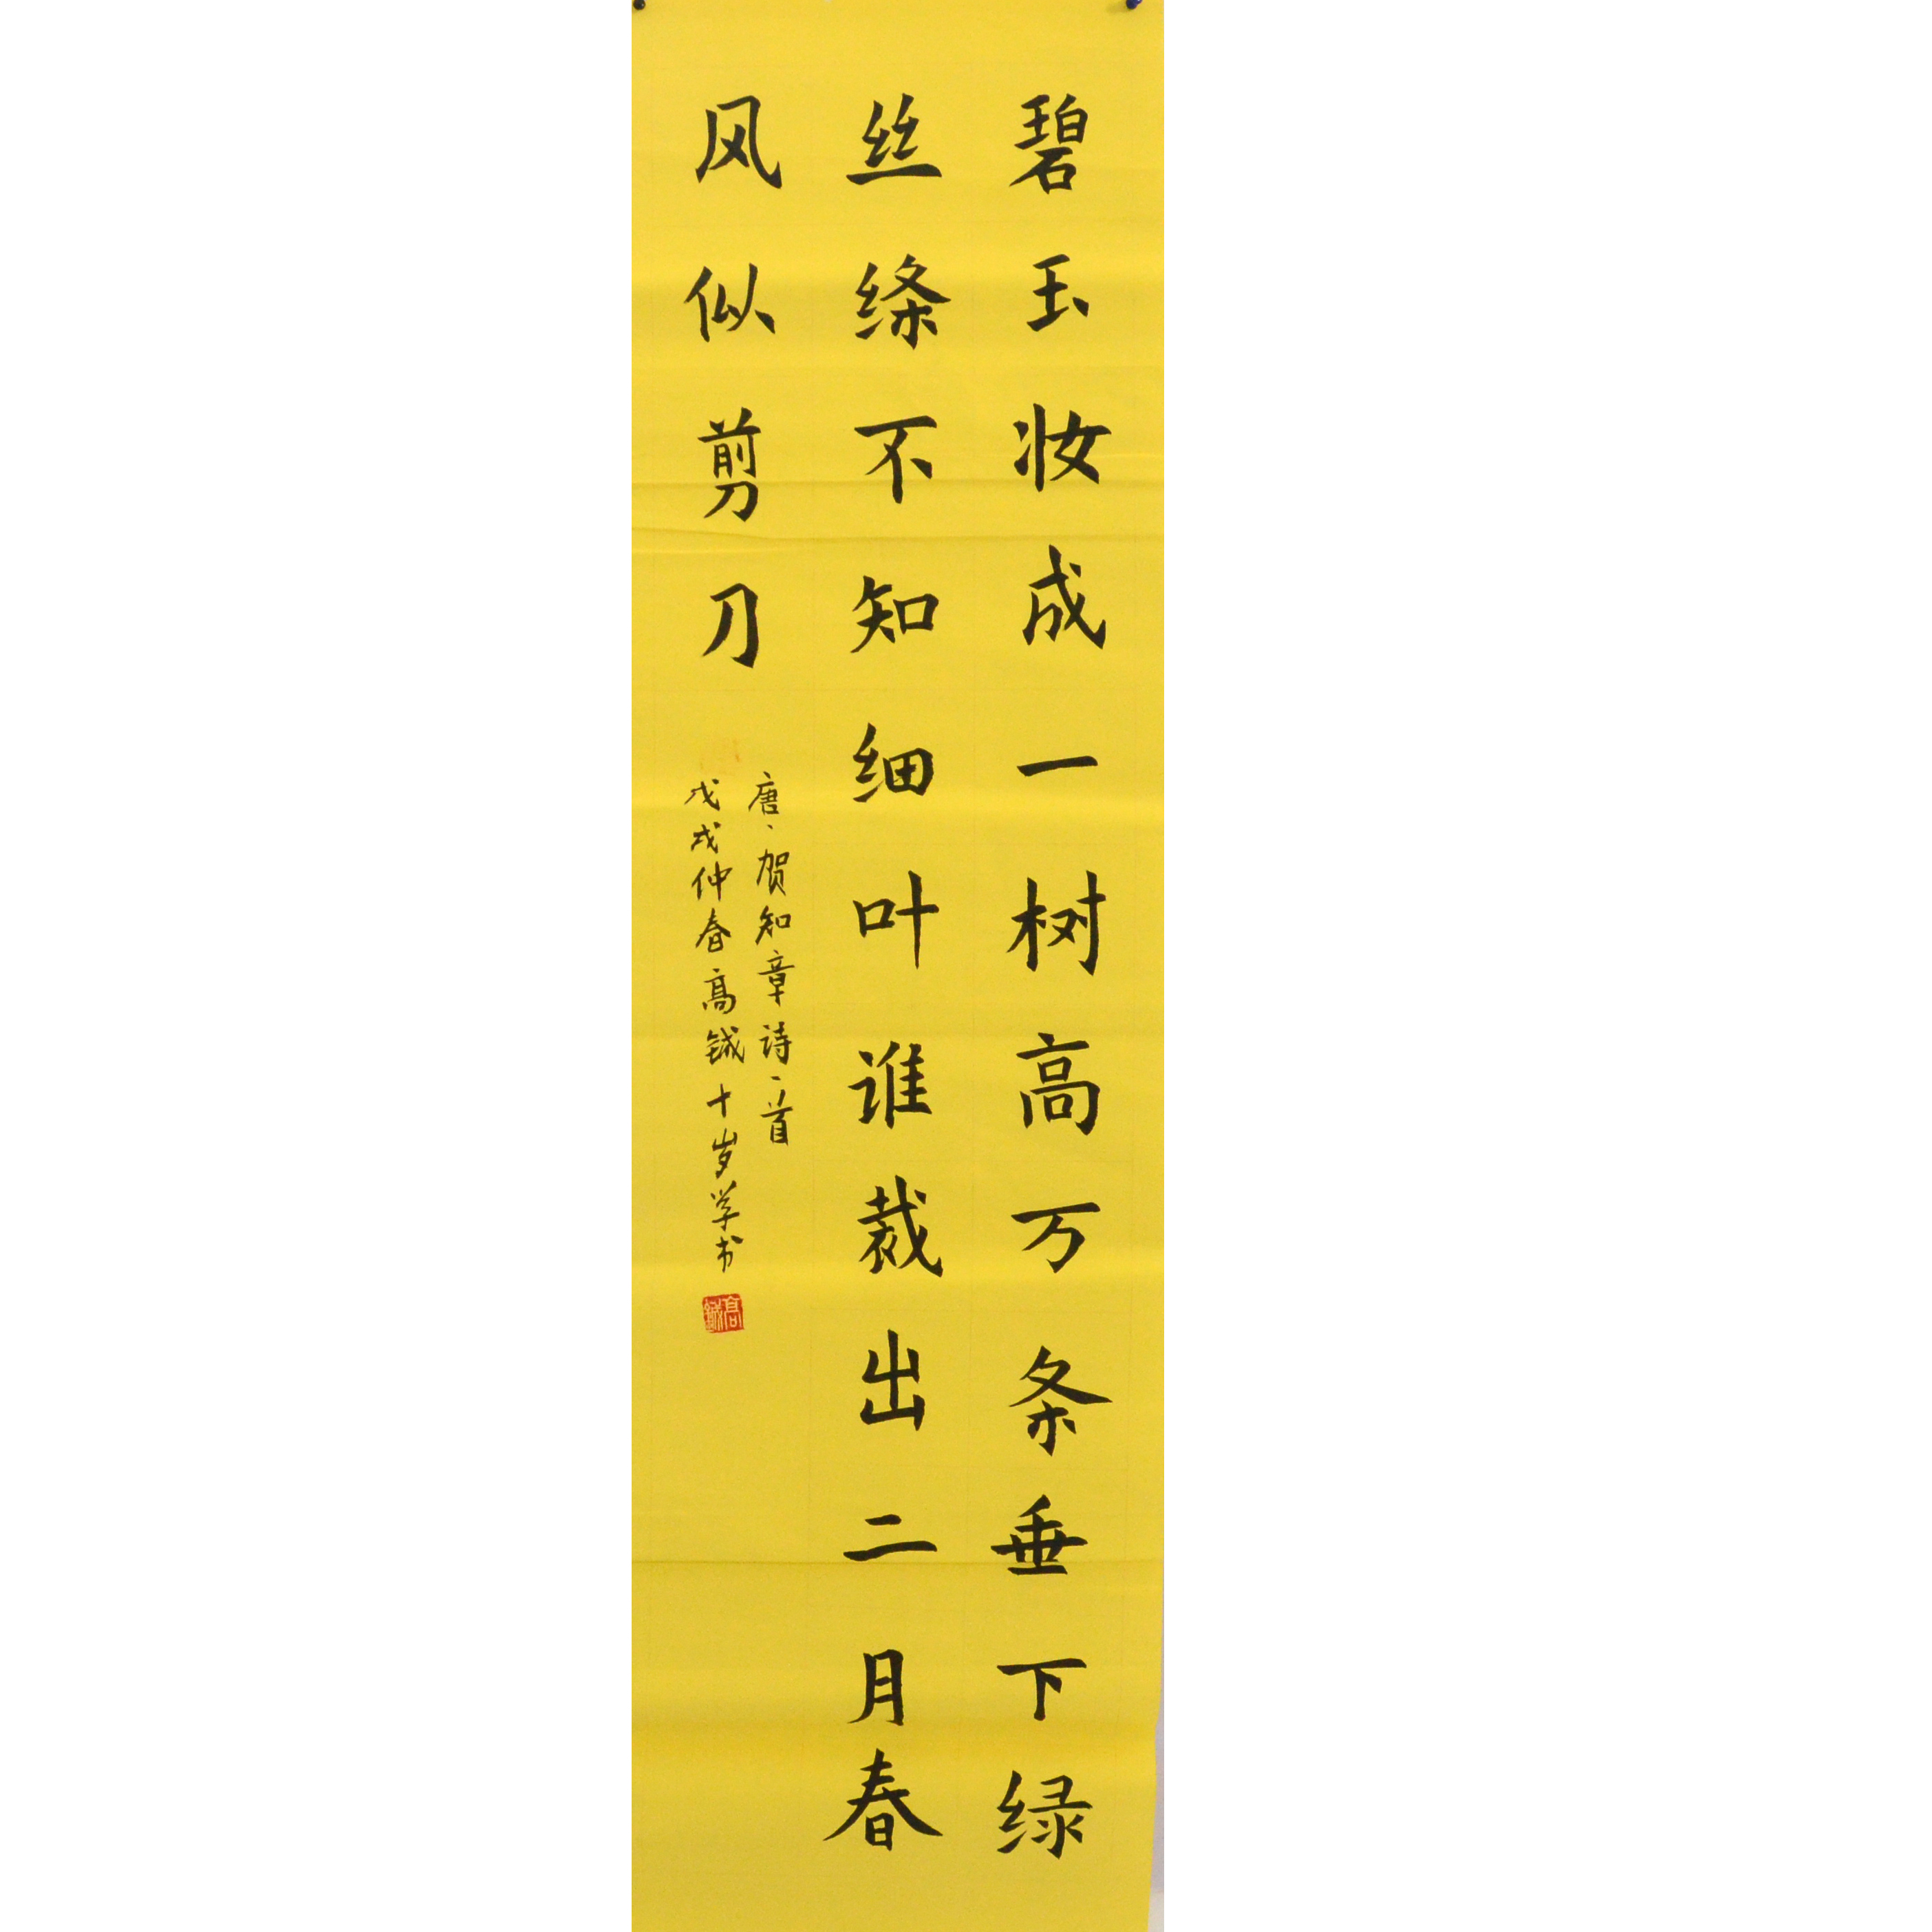 碧玉妆成一树高万条垂下绿
丝绦不知细叶谁裁出二月春
风似剪刀
唐、贺知章诗一首
戊戌仲春高铖十岁学书
高铖